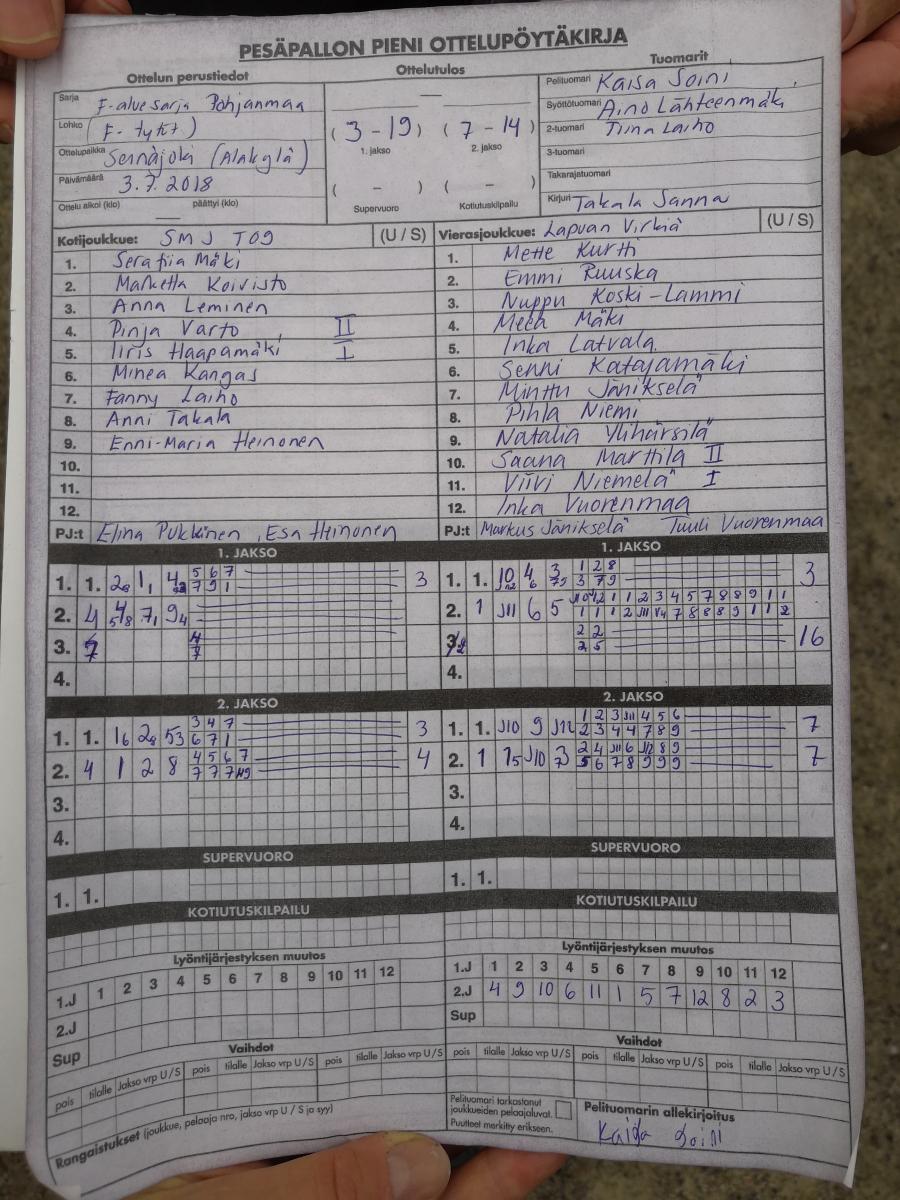 PESÄPALLON PIENI OTTELUPÖYTÄKIRJA
Ottelun perustiedot Ottelutulos Tuomarit
Sarja F-aluesarja Pohjanmaa
Lohko (F-tytöt)
Ottelupaikka Seinäjoki (Alakylä)
Päivämäärä 3.7.2018
Ottelu alkoi (klo) — päättyi (klo)
—
(3 - 19) (7 - 14)
1. jakso 2. jakso
( - ) ( - )
Supervuoro Kotiutuskilpailu
Pelituomari Kaisa Soini
Syöttötuomari Aino Lähteenmäki
2-tuomari Tiina Laiho
3-tuomari
Takarajatuomari
Kirjuri Takala Sanna
Kotijoukkue: SMJ T09 (U / S)
1. Serafiia Mäki
2. Marketta Koivisto
3. Anna Leminen
4. Pinja Varto II
5. Iiris Haapamäki I
6. Minea Kangas
7. Fanny Laiho
8. Anni Takala
9. Enni-Maria Heinonen
10.
11.
12.
PJ:t Elina Pukkinen, Esa Heinonen
Vierasjoukkue: Lapuan Virkiä (U / S)
1. Mette Kurtti
2. Emmi Ruuska
3. Nuppu Koski-Lammi
4. Meea Mäki
5. Inka Latvala
6. Senni Katajamäki
7. Minttu Jänikselä
8. Pihla Niemi
9. Natalia Ylihärsilä
10. Saana Marttila II
11. Viivi Niemelä I
12. Inka Vuorenmaa
PJ:t Markus Jänikselä Tuuli Vuorenmaa
1. JAKSO
5 6 7
1. 1. 7 9 1 3
2. 4 7 9
3.
4.
1. JAKSO
1 2 8
1. 1. 10 4 3 3 7 9 3
1 2 3 4 5 7 8 8 9 1 1
2. 1 J11 6 5 7 8 8 8 9 1 1 2
2 2
3. 2 5 16
4.
2. JAKSO
3 4 7
1. 1. 16 28 53 6 7 1 3
4 5 6 7
2. 4 1 2 8 7 7 7 4
3.
4.
2. JAKSO
1 2 3 J11 4 5 6
1. 1. J10 9 J12 2 3 4 4 7 8 9 7
2 4 J11 6 J12 8 9
2. 1 J10 5 6 7 8 9 9 9 7
3.
4.
SUPERVUORO
1. 1.
SUPERVUORO
1. 1.
KOTIUTUSKILPAILU
KOTIUTUSKILPAILU
Lyöntijärjestyksen muutos
1.J 1 2 3 4 5 6 7 8 9 10 11 12
2.J
Sup
Lyöntijärjestyksen muutos
1.J 1 2 3 4 5 6 7 8 9 10 11 12
2.J 4 9 10 6 11 1 5 7 12 8 2 3
Sup
Vaihdot
pois tilalle Jakso vrp U / S pois tilalle Jakso vrp U / S pois tilalle Jakso vrp U / S
Vaihdot
pois tilalle Jakso vrp U / S pois tilalle Jakso vrp U / S pois tilalle Jakso vrp U / S
Rangaistukset (joukkue, pelaaja nro, jakso vrp U / S ja syy)
Pelituomari tarkastanut
joukkueiden pelaajaluvat.
Puutteet merkitty erikseen.
Pelituomarin allekirjoitus
Kaisa Soini